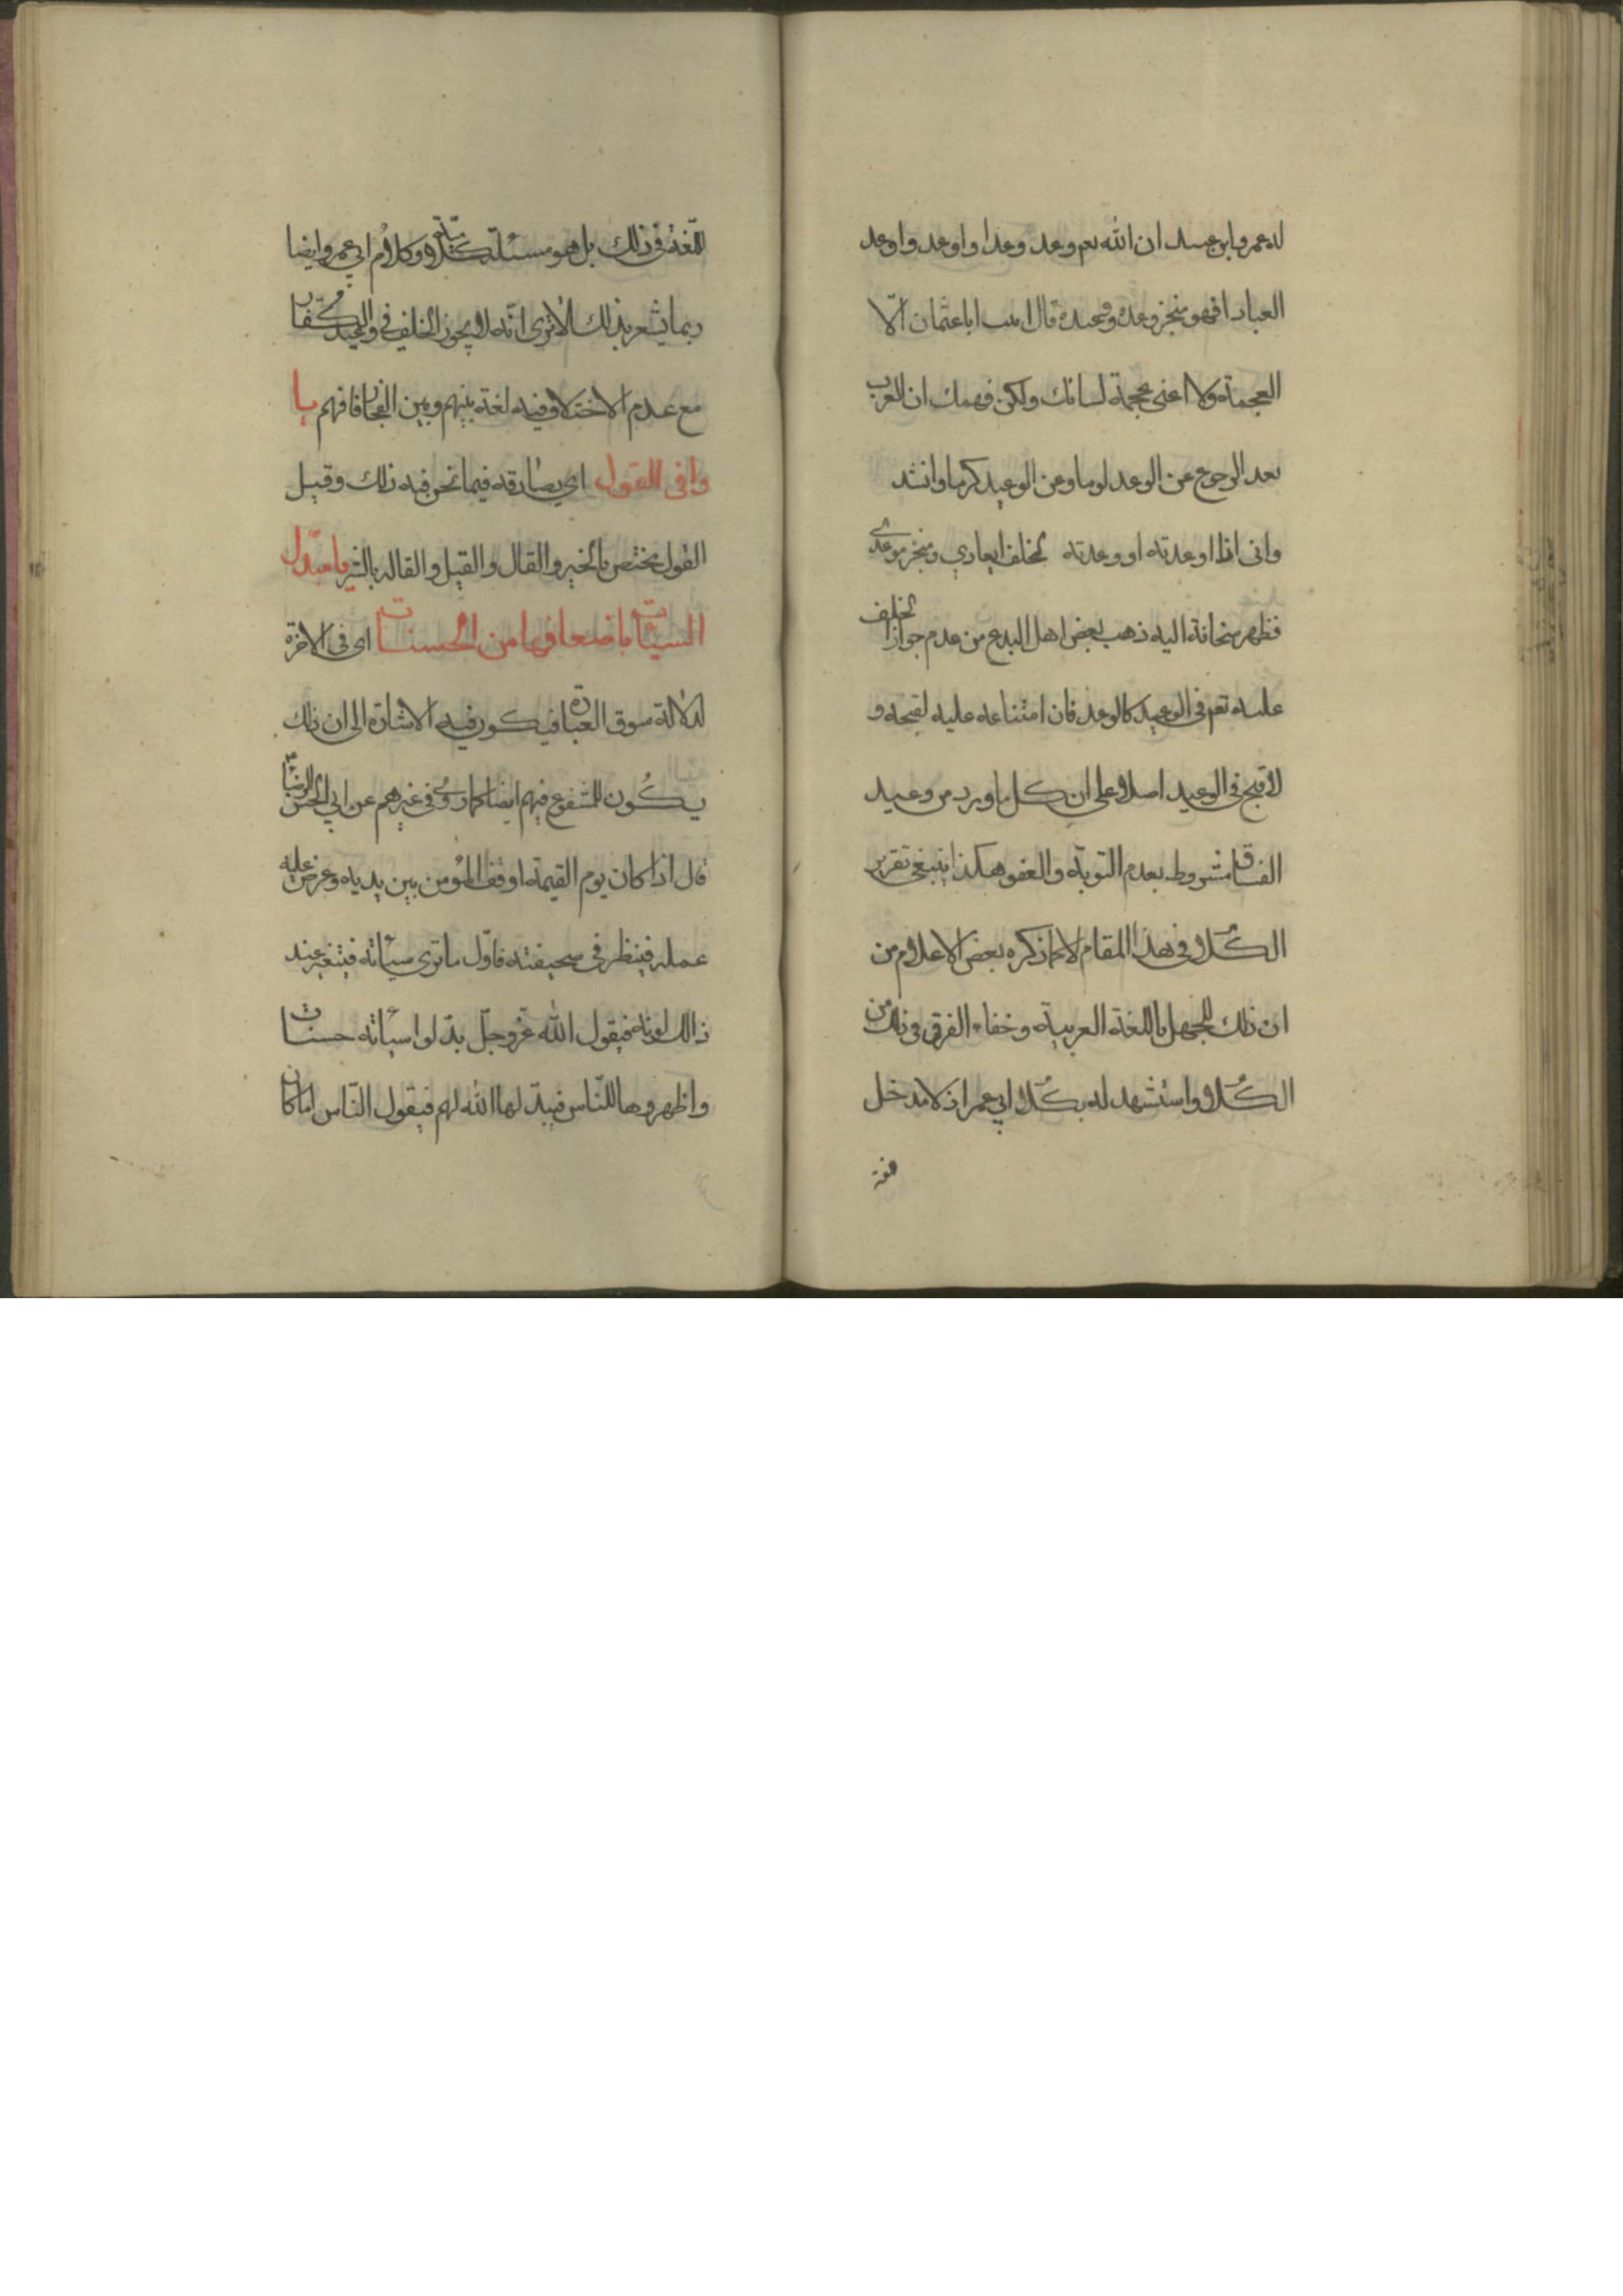 له عمرو ابن عبيد ان الله تعم وعد وعدا واوعد واوعد
العبادا فهو منجز وعده ووعيده قال انت اباعثمان الّا
العجمة ولا اعنى عجمة لسانك ولكن فهمك ان العرب
تعد الرجوع عن الوعد لوما وعن الوعيد كرما وانشد
وانى اذا اوعدته او وعدته لمخلف ايعادي ومنجز موعدى
فظهر سخافة اليه ذهب بعض اهل البدع من عدم جواز الخلف
عليه تعم فى الوعيد كالوعد فان امتناعه عليه لقبحه و
لا قبح فى الوعيد اصلا وعلى ان كل ما ورد من وعيد
الفساق مشروط بعدم التوبة والعفو هكذا ينبغى تقرير
الكلام فى هذا المقام لا كما ذكره بعض الاعلام من
ان ذلك للجهل باللغة العربية وخفاء الفرق فى ذلك من
الكلام واستشهد له بكلام ابي عمر اذ لا مدخل
للّغة فى ذلك بل هو مسئلة كلامية وكلام ابي عمرو ايضا
ربما يشعر بذلك الا ترى انّه لا يجوز الخلف فى وعيد الكفّار
مع عدم الاختلاف فيه لغة بينهم وبين الفجار فافهم يا
وافى القول اي يصادقه فيما نحن فيه ذلك وقيل
القول مختص بالخير والقال والقيل والقاله بالشر يا مبدّل
السيئات باضعافها من الحسنات اى فى الاخرة
لدلالة سوق العبارة فيكون فيه الاشارة الى ان ذلك
يكون للشفوع فيهم ايضا كما روى فى غيرهم عن ابي الحسن الرضا
قال اذا كان يوم القيمة اوقف المؤمن بين يديه وعرض عليه
عمله فينظر فى صحيفته فاوّل ما ترى سيئاته فيتغير عند
ذالك لونه فيقول الله عزوجلّ بدّلوا سيئاته حسنات
واظهروها للنّاس فيبدّلها الله لهم فيقول النّاس اما كان